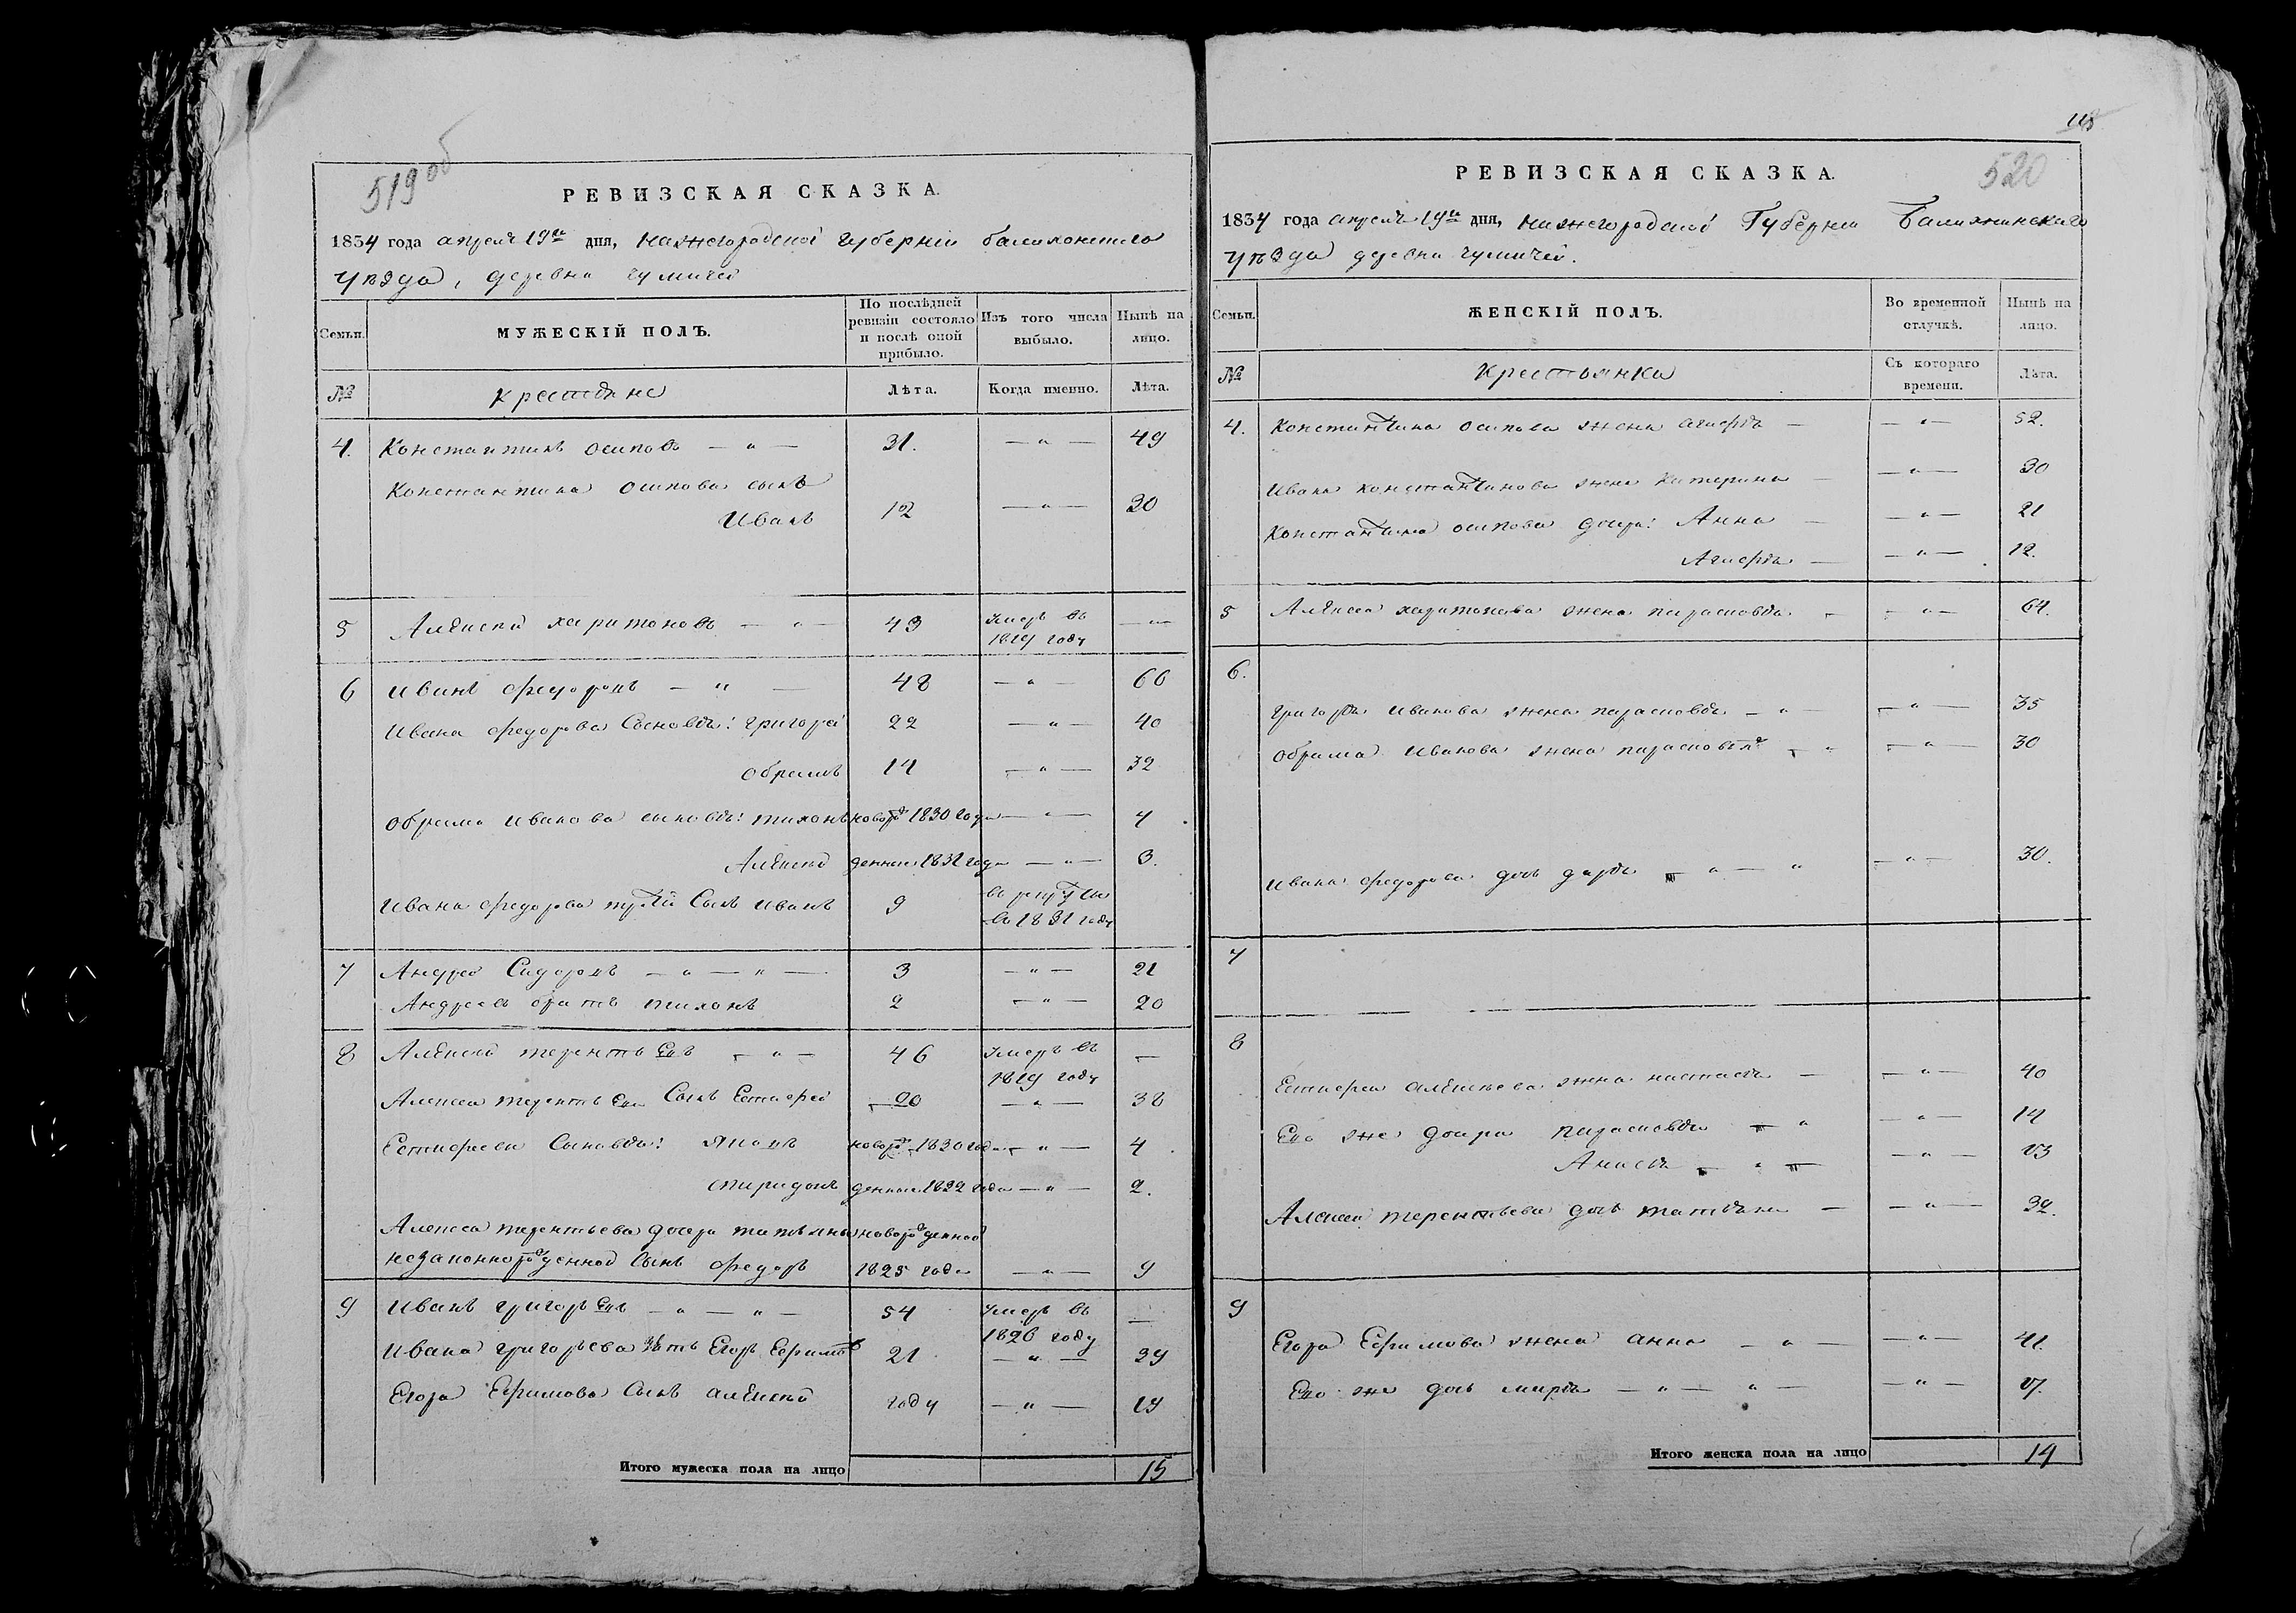 519 об
РЕВИЗСКАЯ СКАЗКА.
1834 года апреля 19го дня, нижегородской губернии балахонскаго
уѣзда, деревни
Семьи.
МУЖЕСКІЙ ПОЛЪ.
По послѣдней ревизіи состояло и послѣ оной прибыло.
Изъ того числа выбыло.
Нынѣ на лицо.
№
крестьяне
Лѣта.
Когда именно.
Лѣта.
4. Константинъ осиповъ — „ — 31. — „ — 49
Константина осипова сынъ
Иванъ 12 — „ — 30
5 Алексей харитоновъ — „ — 43 умеръ въ
1819 году — „ —
6 иванъ федоровъ — „ — 48 — „ — 66
ивана федорова Сыновья: григорей 22 — „ — 40
обрамъ 14 — „ — 32
обрама иванова сыновья: тихонъ новорж 1830 года — „ — 4
Алексей денные 1831 года — „ — 3.
ивана федорова третій Сынъ иванъ 9 въ рекруты
въ 1831 году
7 Андрей Сидоровъ — „ — „ — 3 — „ — 21
Андреевъ братъ тихонъ 2 — „ — 20
8 Алексей терентьевъ — „ — 46 умеръ въ —
1819 году
Алексея терентьева Сынъ Естифей 20 — „ — 38
Естифеева Сыновья: новорж 1830 года — „ — 4
спиридонъ денные 1832 года — „ — 2.
Алексея терентьева дочери татьяны новорожденной
незаконнорожденной Сынъ федоръ 1825 года — „ — 9
9 иванъ григорьевъ — „ — „ — 54 умеръ въ —
1826 году
ивана григорьева зять Егоръ Ефимовъ 21 — „ — 39
Егора Ефимова Сынъ алексей году — „ — 19
Итого мужеска пола на лицо 15
118
520
РЕВИЗСКАЯ СКАЗКА.
1834 года апреля 19го дня, нижегородской Губернии Балахнинскаго
уѣзда деревни
Семьи.
ЖЕНСКІЙ ПОЛЪ.
Во временной отлучкѣ.
Нынѣ на лицо.
№
крестьянки
Съ котораго времени.
Лѣта.
4. Константина осипова жена — — „ — 52.
ивана константинова жена катерина — — „ — 30
Константина осипова дочери: Анна — — „ — 21
— — „ — 12.
5 Алексея харитонова жена парасковья — — „ — 64.
6.
григорья иванова жена парасковья — „ — — „ — 35
обрама иванова жена парасковья — „ — „ — 30
ивана федорова дочь дарья — „ — „ — „ — 30.
7
8
Естифея алексеева жена настасья — — „ — 40
Ево же дочери парасковья — „ — „ — 14
Анисья — „ — — „ — 13
Алексея терентьева дочь татьяна — — „ — 32.
9
Егора Ефимова жена анна — „ — — „ — 41.
Ево же дочь марья — „ — „ — — „ — 17.
Итого женска пола на лицо 14